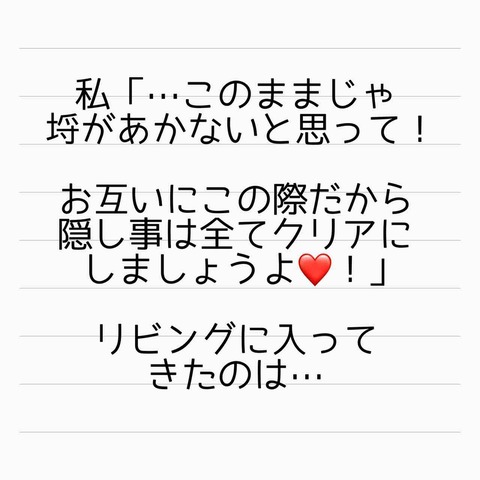 私「…このままじゃ
埒があかないと思って！
お互いにこの際だから
隠し事は全てクリアに
しましょうよ❤️！」
リビングに入って
きたのは…